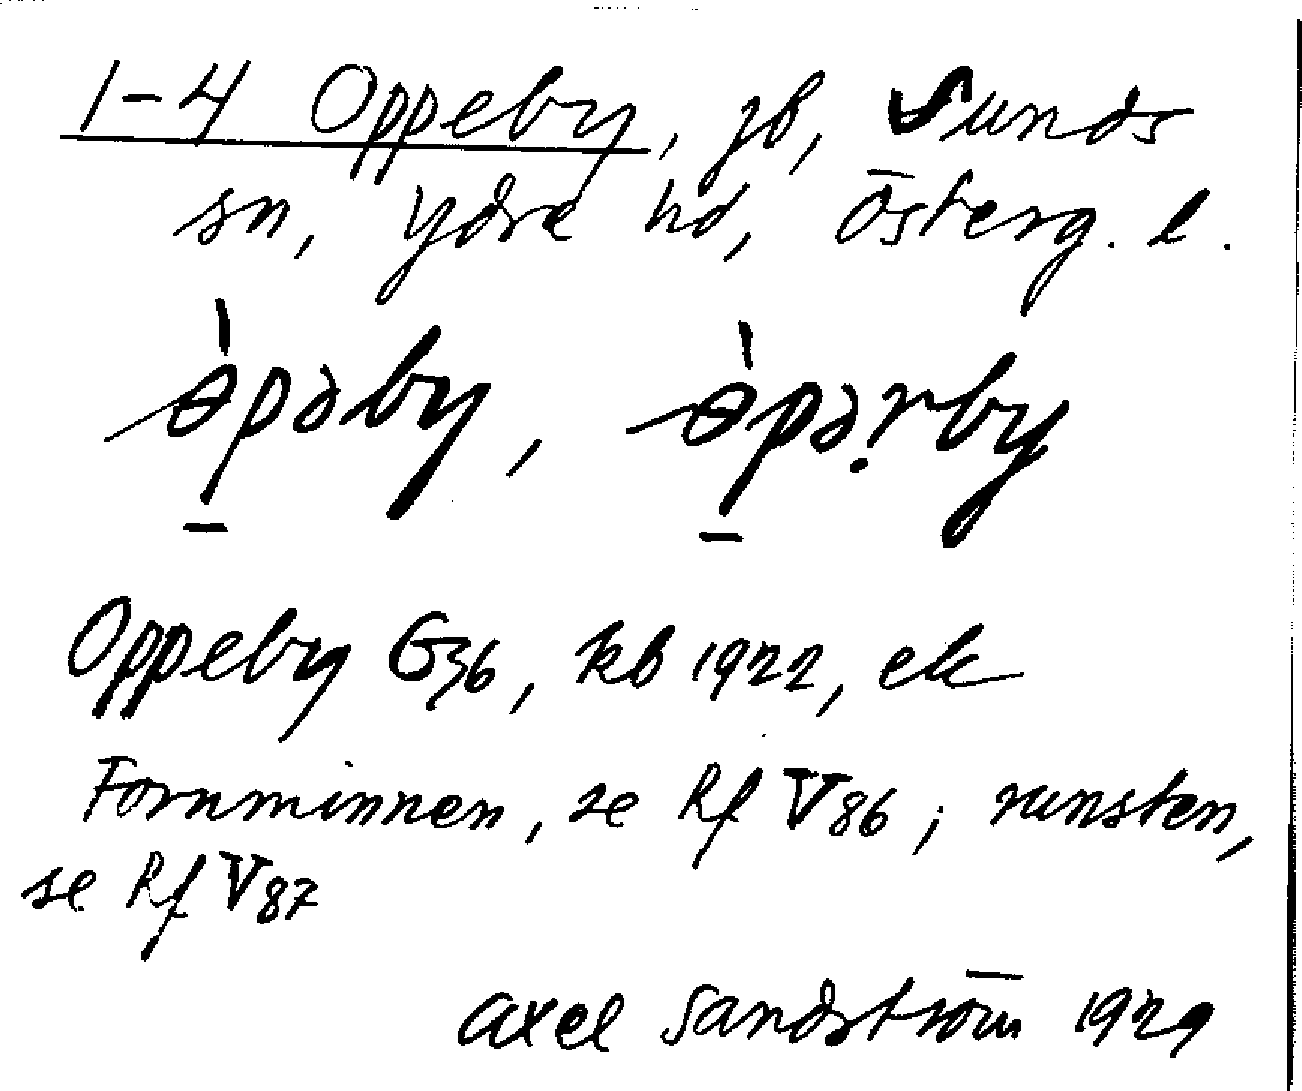 1-4 Oppeby, jb, Sunds
sn, Ydre hd, Österg. l.
ɵ̀p̠əby, ɵ̀p̠ə.rby
Oppeby G36, kb 1922, ek
Fornminnen, se Rf V86; runsten,
se Rf V87
Axel Sandström 1929